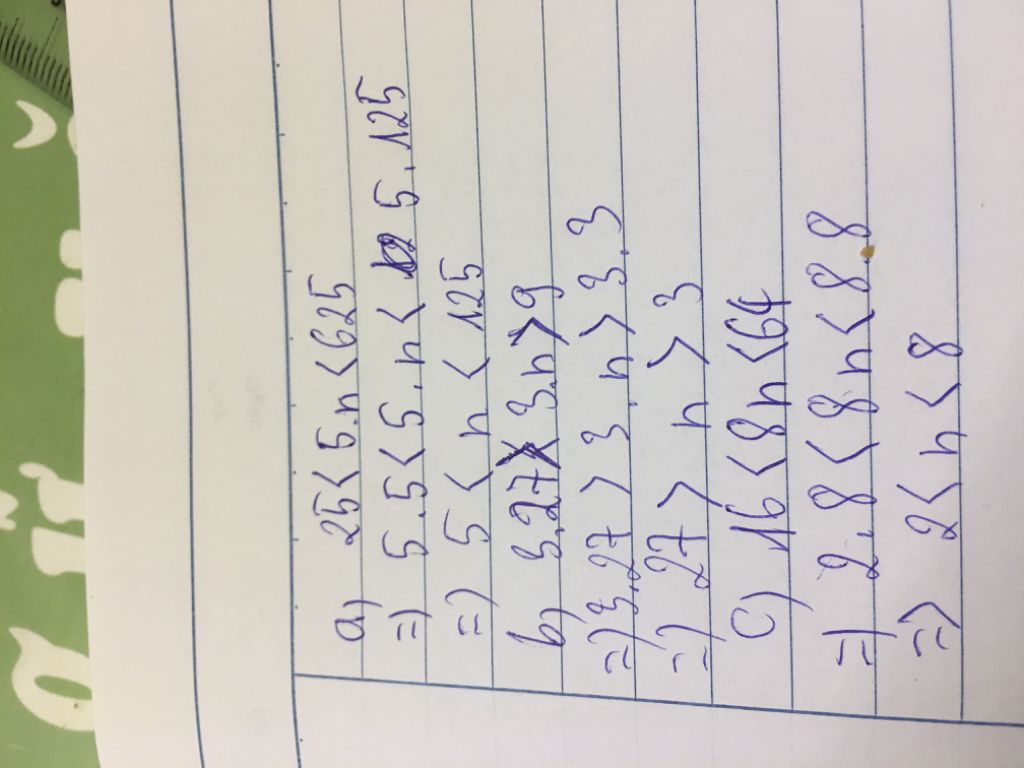 a) 25<5.n<625
=) 5.5<5.n< 5.125
=) 5<n<125
b) 3.27>3.n>9
=) 3.27>3.n>3.3
=) 27>n>3
c) 16<8n<64
=) 2.8<8n<8.8
=) 2<n<8